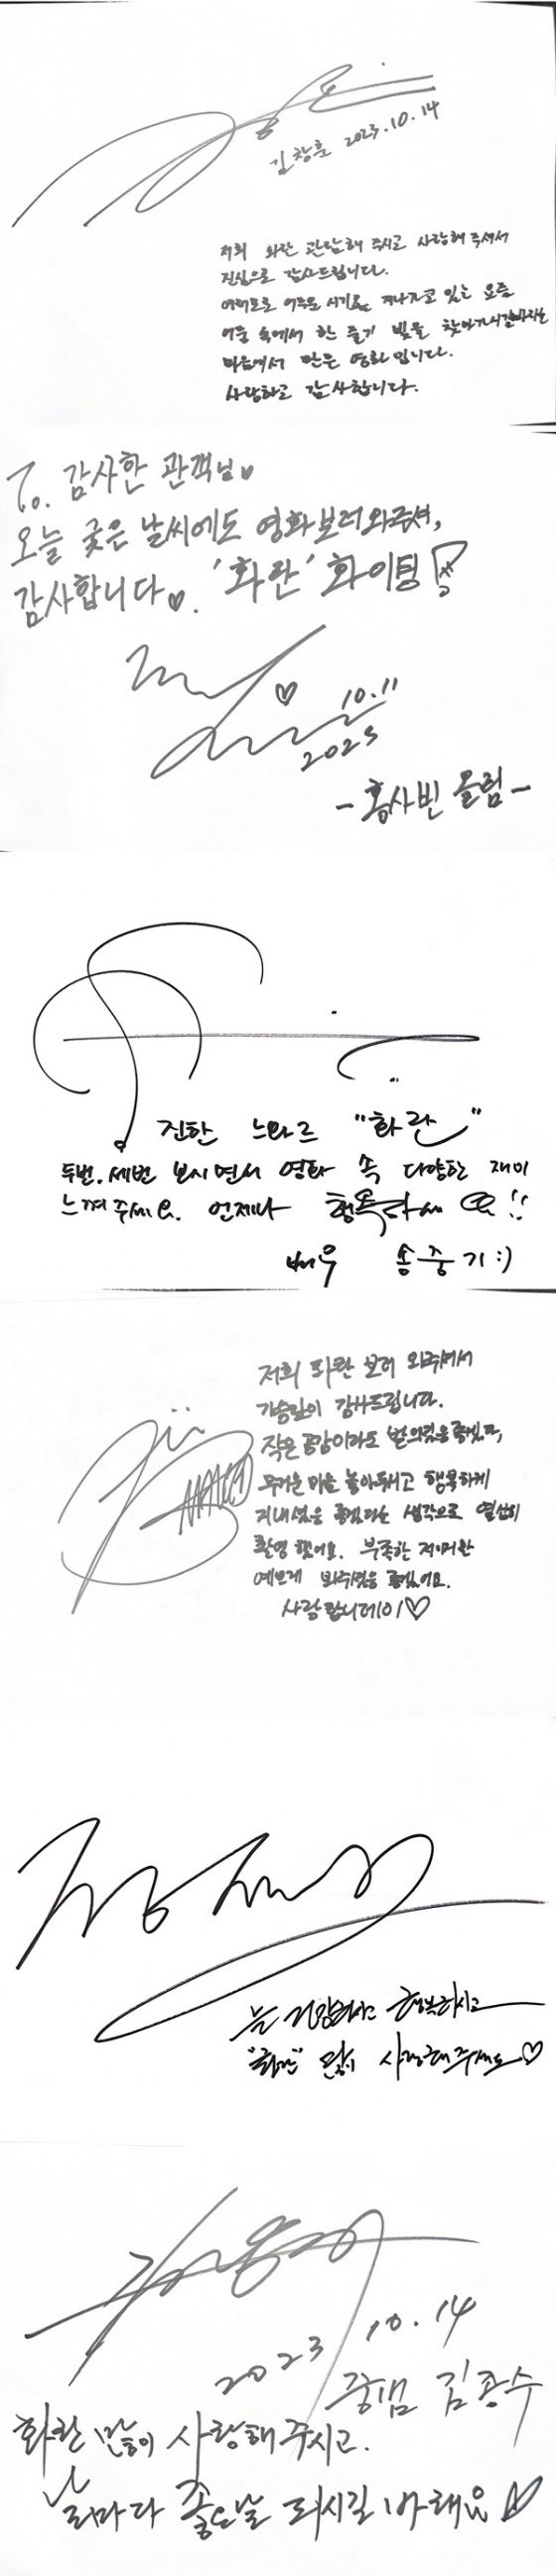 김창훈 2023.10.14
저희 화란 관람해 주시고 사랑해 주셔서
진심으로 감사드립니다.
여러모로 어두운 시기를 지나가고 있는 요즘
어둠 속에서 한 줄기 빛을 찾아가시길바라는
마음에서 만든 영화입니다.
사랑하고 감사합니다.
To. 감사한 관객님♥
오늘 궂은 날씨에도 영화보러와주셔,
감사합니다♥. '화란' 화이팅!
10.11
2023
-홍사빈 올림-
진한 느와르 "화란"
두번, 세번 보시면서 영화 속 다양한 재미
느껴주세요. 언제나 행복하세요!!
배우 송중기:)
저희 화란 보러 와주셔서
가슴깊이 감사드립니다.
작은 공감이라도 받으셨음 좋겠고,
무거운 마음 놓아두시고 행복하게
지내셨음 좋겠다는 생각으로 열심히
촬영했어요. 부족한 저이지만
예쁘게 봐주셨음 좋겠어요.
사랑합니데이♡
늘 건강하시고 행복하시고
"화란" 많이 사랑해주세요♡
2023 10.14
중범 김종수
화란 많이 사랑해 주시고.
날마다 좋은날 되시길 바래요♡